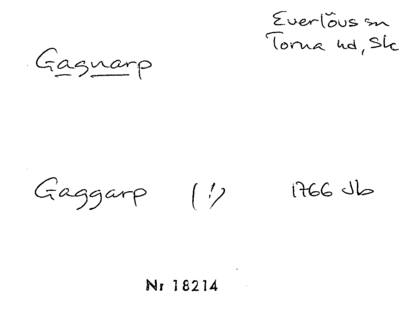 Everlövs sn
Torna hd, Sk
Gagnarp
Gaggarp (!) 1766 Jb
Nr 18214